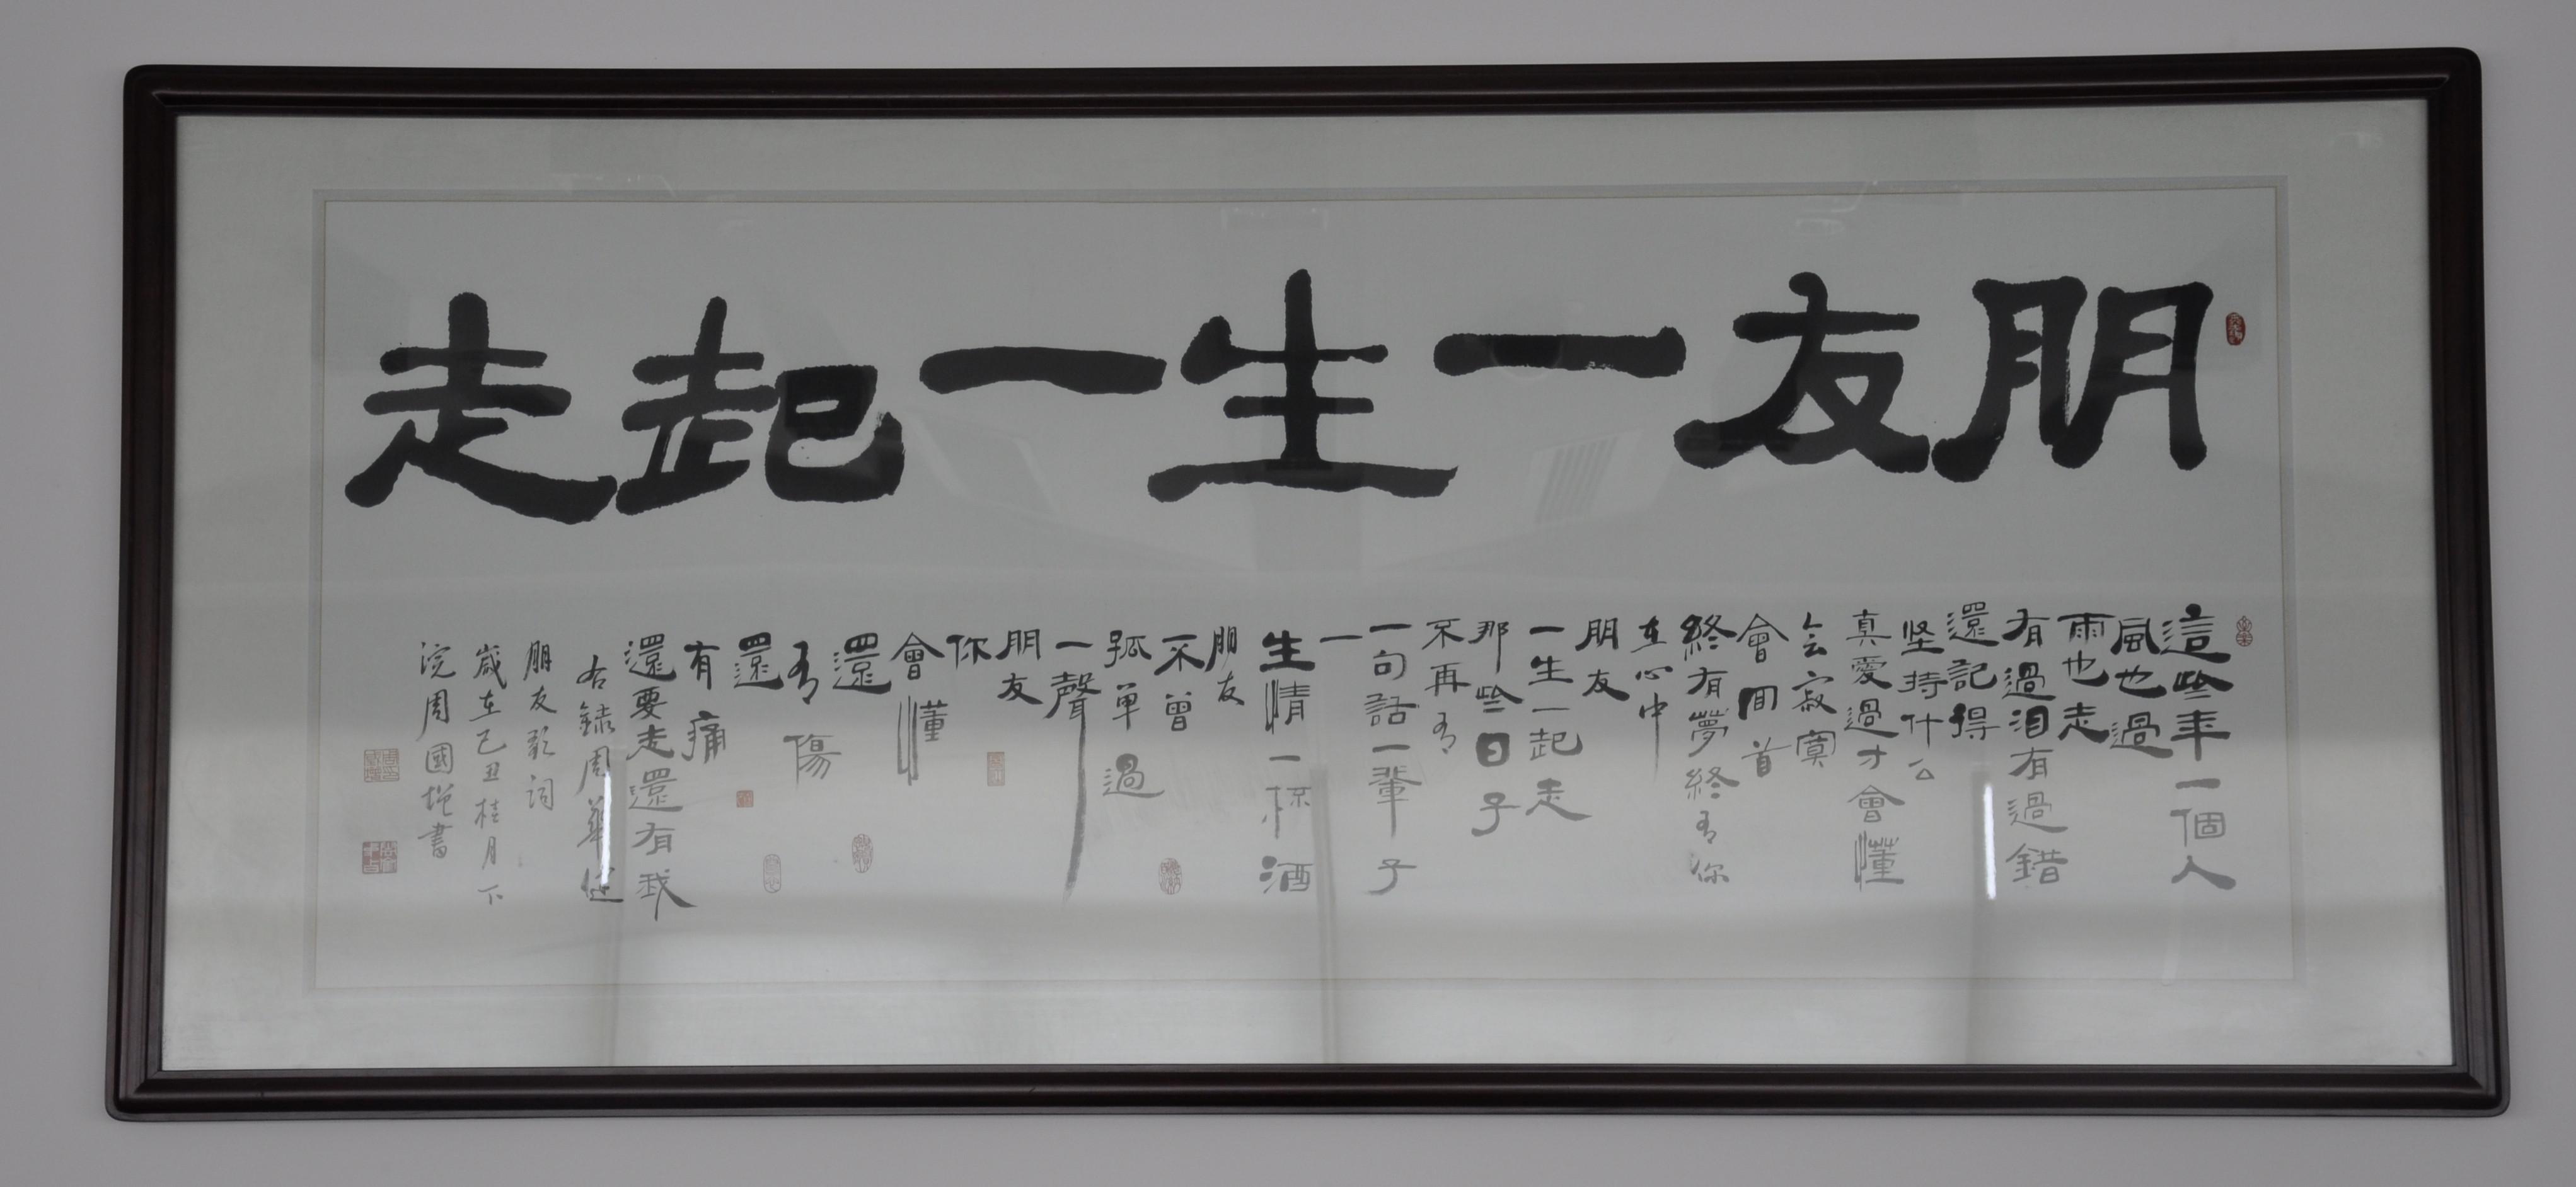 朋友一生一起走
這些年一個人
風也過
雨也走
有過泪有過錯
還記得
坚持什么
真愛過才會懂
会寂寞
會回首
終有夢終有你
在心中
朋友
一生一起走
那些日子
不再有
一句話一輩子
一
生情一杯酒
朋友
不曾
孤单過
一聲
朋友
你
會懂
還
有傷
還
有痛
還要走還有我
右録周華健
朋友歌詞
歲在己丑桂月下
浣周國增書